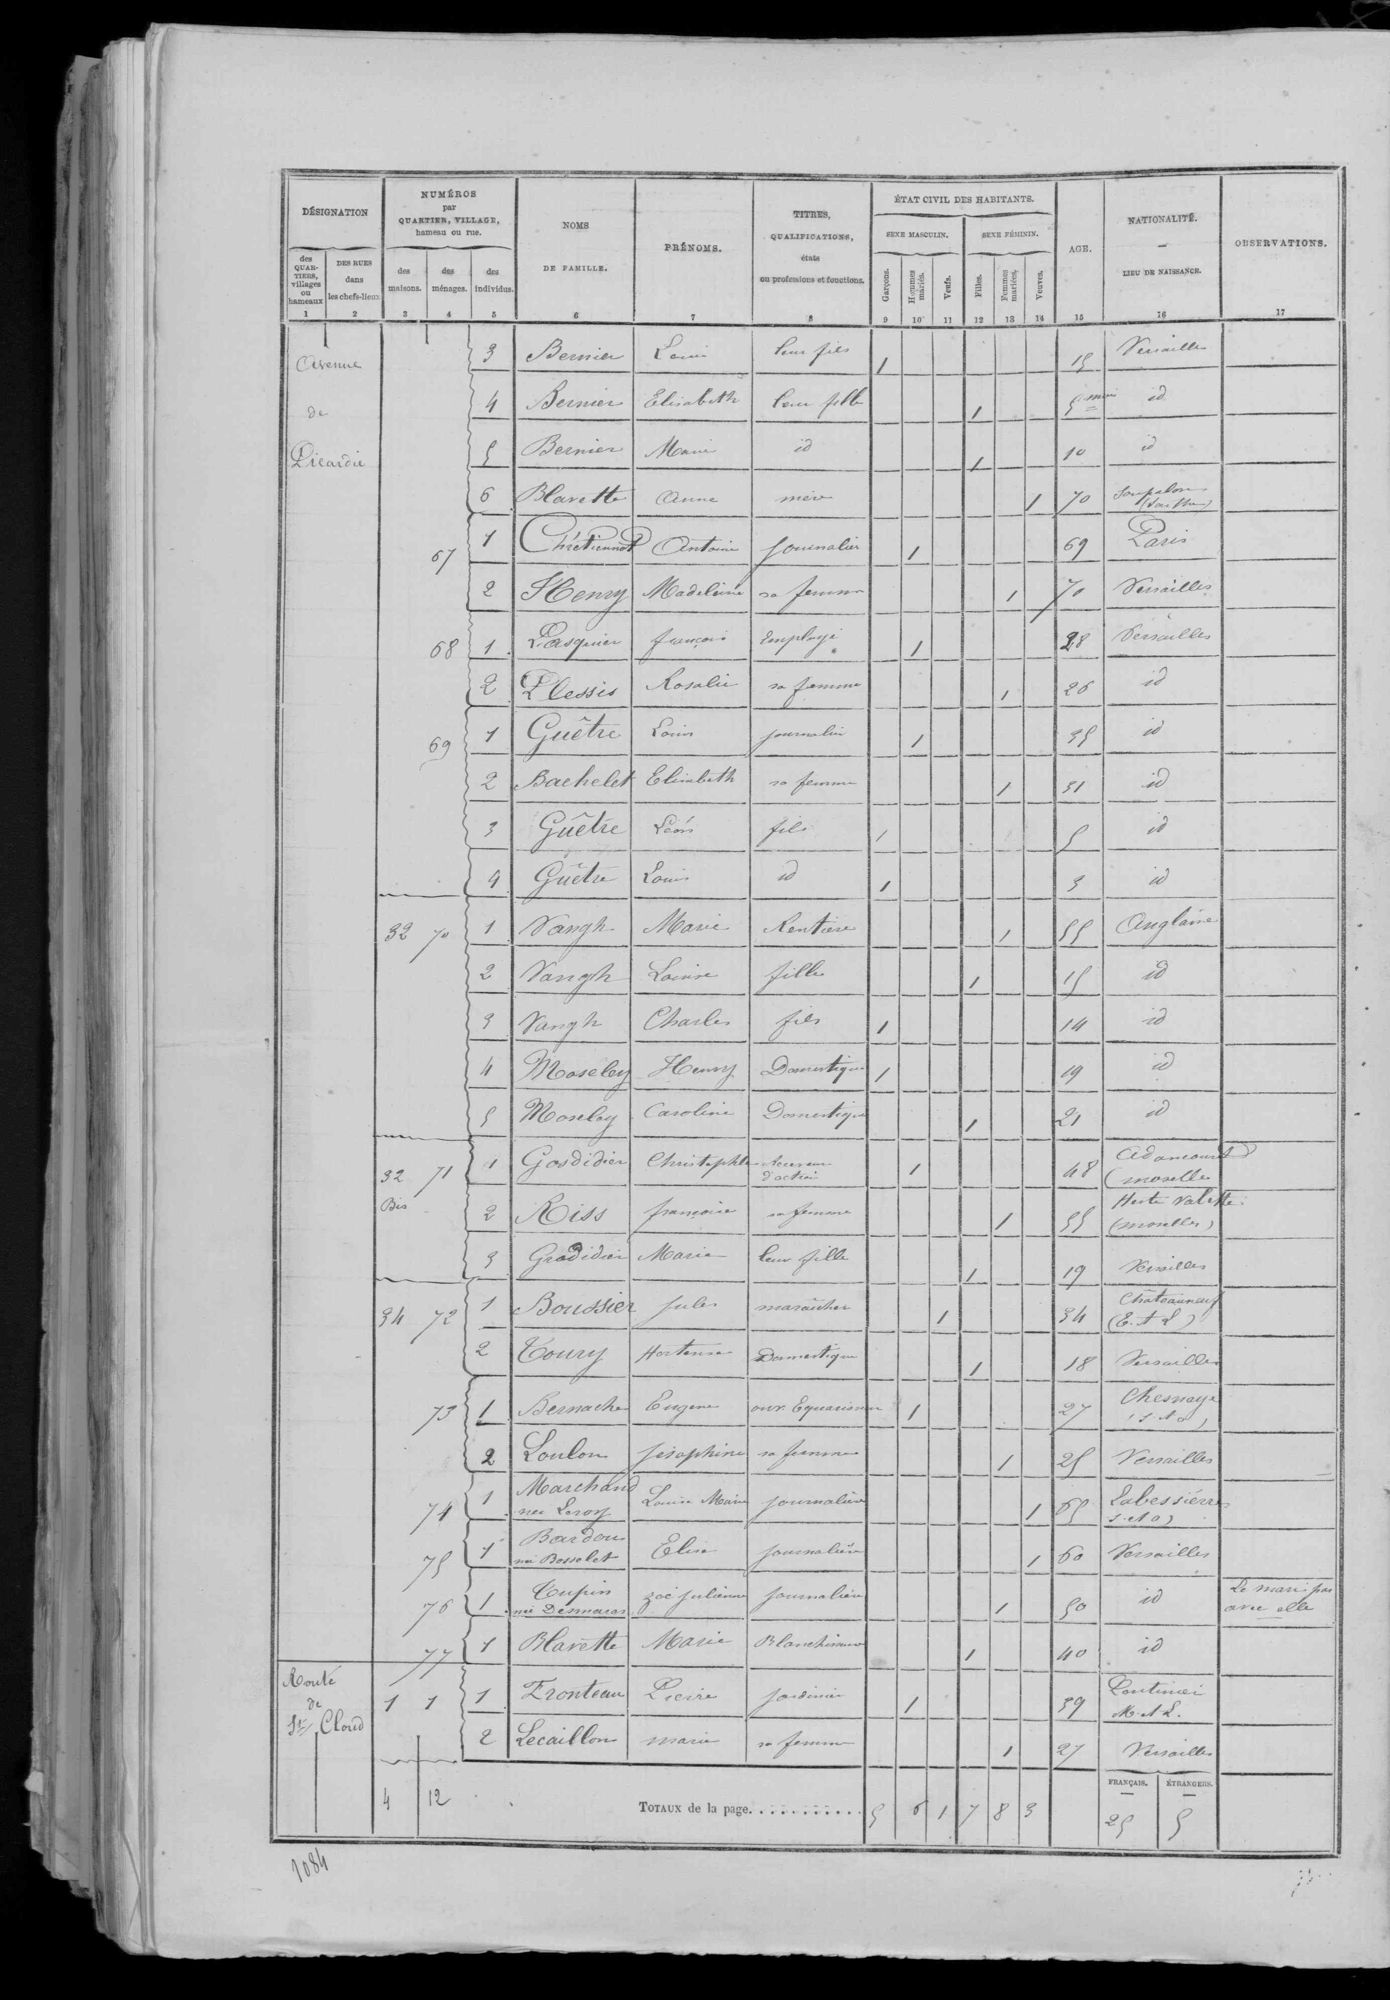 DÉSIGNATION
NUMÉROS
par
QUARTIER, VILLAGE,
hameau ou rue.
NOMS
DE FAMILLE.
PRÉNOMS.
TITRES,
QUALIFICATIONS,
états
ou professions et fonctions.
ÉTAT CIVIL DES HABITANTS.
SEXE MASCULIN. SEXE FÉMININ.
AGE.
NATIONALITÉ.
LIEU DE NAISSANCE.
OBSERVATIONS.
des QUAR-TIERS, villages ou hameaux
DES RUES dans les chefs-lieux
des maisons. des ménages. des individus.
Garçons. Hommes mariés. Veufs. Filles. Femmes mariées. Veuves.
1 2 3 4 5 6 7 8 9 10 11 12 13 14 15 16 17
Avenue
de
Picardie
3 Bernier Louis leur fils 1 15 Versailles
4 Bernier Elisabeth leur fille 1 5 mois id
5 Bernier Marie id 1 10 id
6 Blavette Anne mère 1 70
67 1 Chrétiennot Antoine journalier 1 69 Paris
2 Henry Madeleine sa femme 1 70 Versailles
68 1 Pasquier françois Employé 1 28 Versailles
2 Plessis Rosalie sa femme 1 26 id
69 1 Guêtre Louis journalier 1 35 id
2 Bachelet Elisabeth sa femme 1 31 id
3 Guêtre Léon fils 1 5 id
4 Guêtre Louis id 1 3 id
32 70 1 Vangh Marie Rentière 1 55 Anglaise
2 Vangh Louise fille 1 15 id
3 Vangh Charles fils 1 14 id
4 Moseley Henry Domestique 1 19 id
5 Moseley Caroline Domestique 1 21 id
32 71 1 Gosdidier Christophe Receveur d'octroi 1 48 Adancourt (moselle
Bis 2 Riss françoise sa femme 1 55 Valette (moselle)
3 Grodidier Marie leur fille 1 19 Versailles
34 72 1 Boussier Jules maraîcher 1 34 Châteauneuf (E. et L)
2 Toury Hortense Domestique 1 18 Versailles
73 1 Bernache Eugene ouvr Equarisseur 1 27 Chesnaye (S et O)
2 Loulon Joséphine sa femme 1 25 Versailles
74 1 Marchand née Leroy Louise Marie journalière 1 65 Labessière S. et O)
75 1 Bardou née Bosselet Elise journalière 1 60 Versailles
76 1 Tupin née Desmaras zoé julienne journalière 1 50 id Le mari pas avec elle
77 1 Blavette Marie Blanchisseuse 1 40 id
Route
de
St Cloud
1 1 1 Fronteau Pierre jardinier 1 39 M. et L.
2 Lecaillon marie sa femme 1 27 Versailles
FRANÇAIS. ÉTRANGERS.
4 12 TOTAUX de la page. 5 6 1 7 8 3 25 5
1084